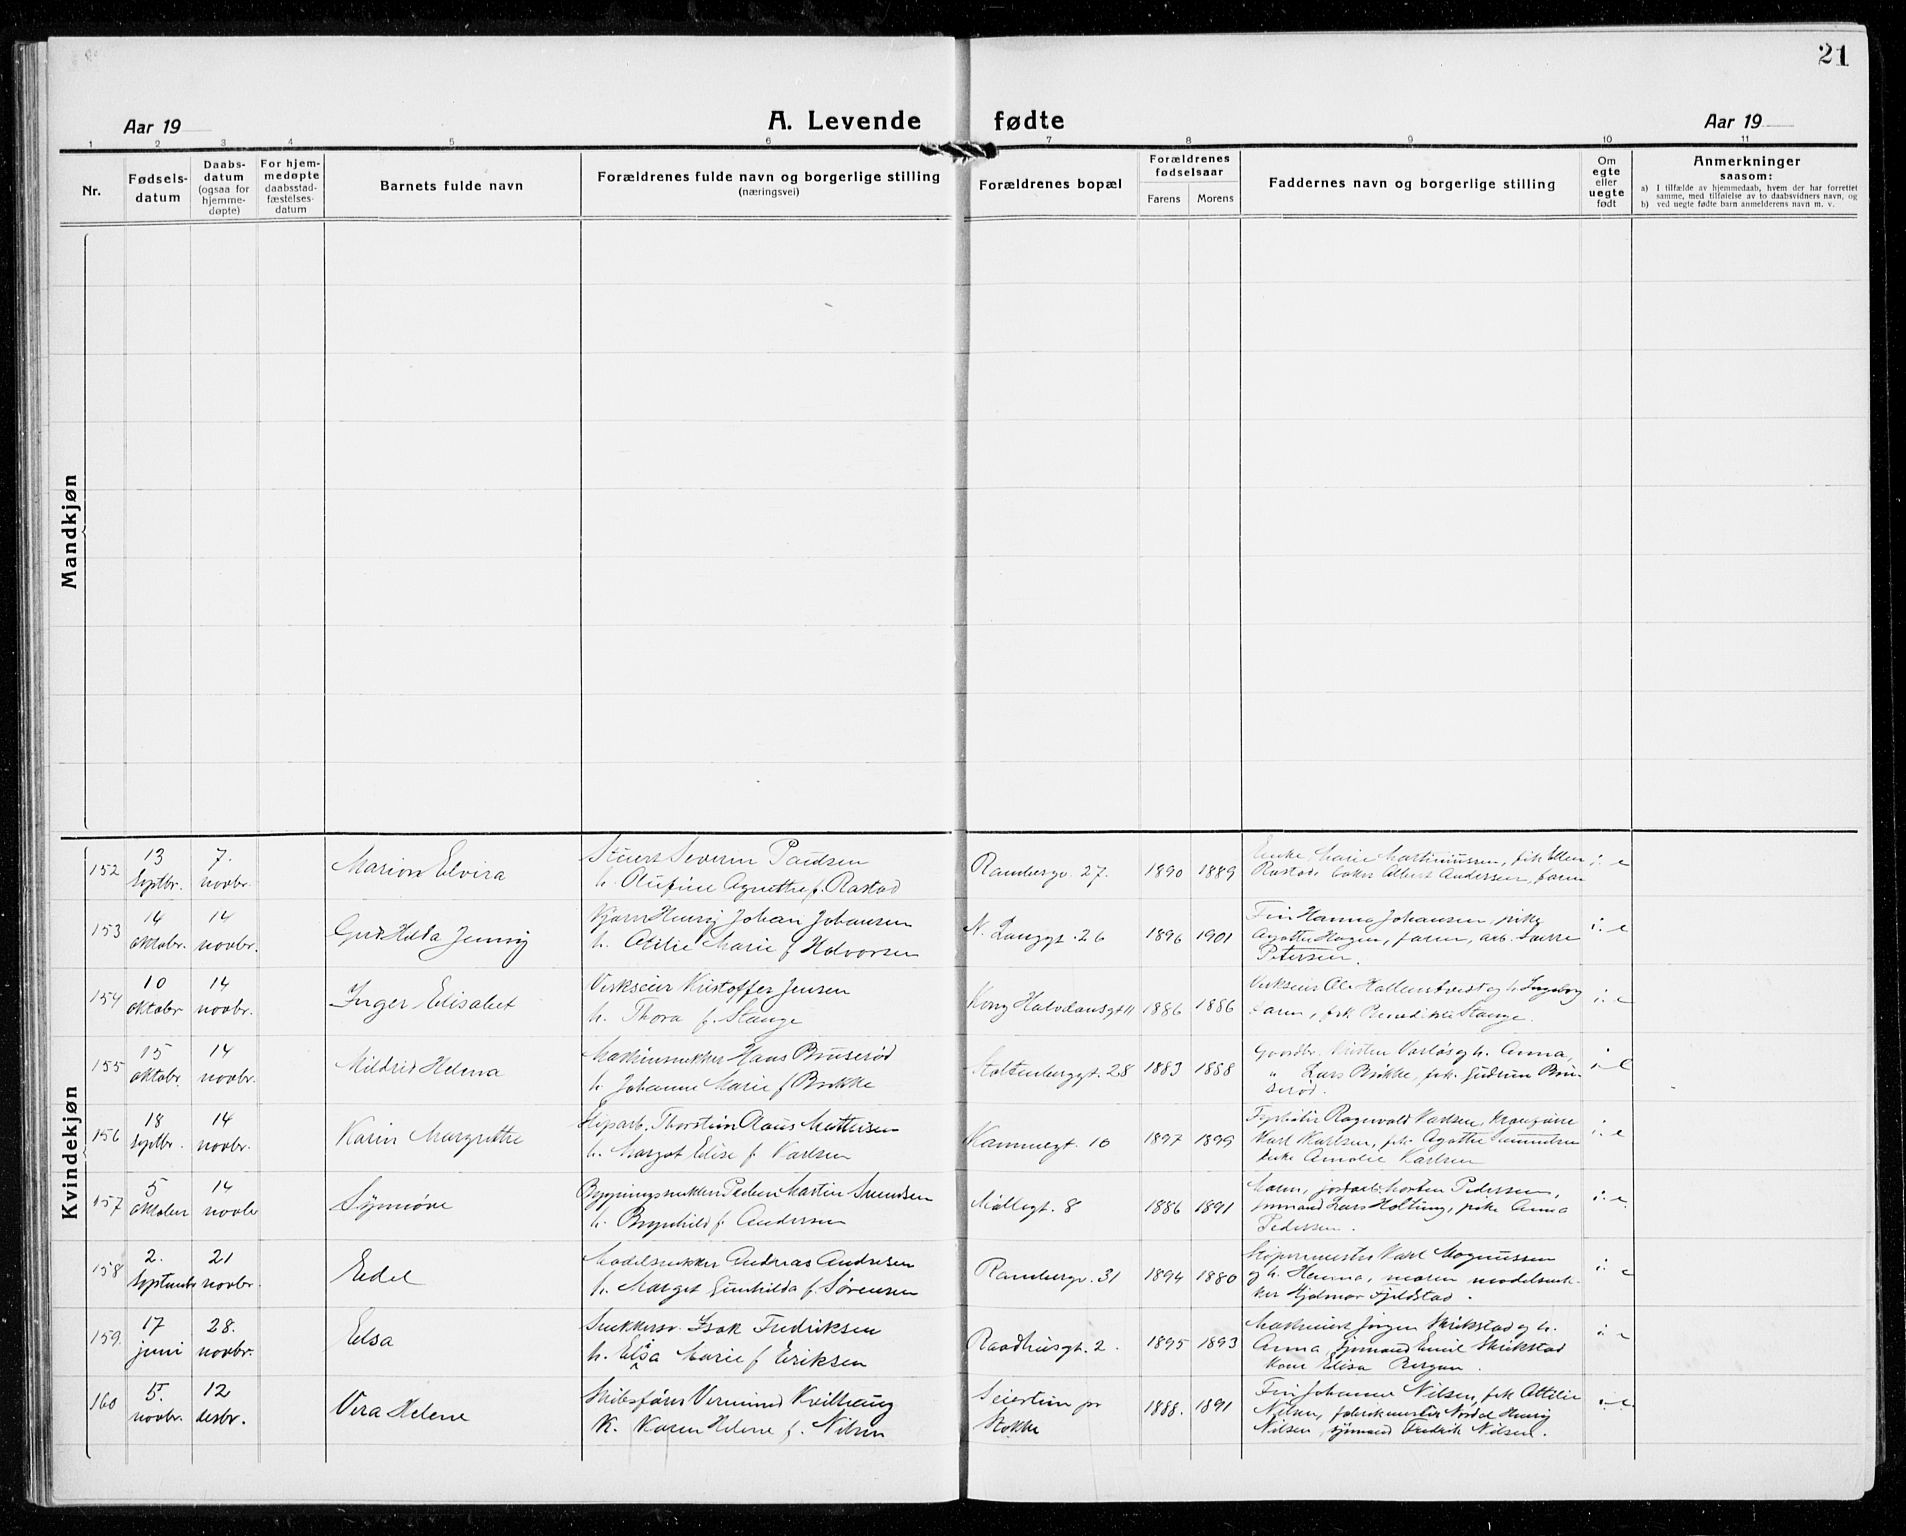 21
Aar 19
A. Levende fødte
Aar 19
1 2 3 4 5 6 7 8 9 10 11
Nr.
Fødsels-
datum
Daabs-
datum
(ogsaa for
hjemme-
døpte)
For hjem-
medøpte
daabsstad-
fæstelses-
datum
Barnets fulde navn
Forældrenes fulde navn og borgerlige stilling
(næringsvei)
Forældrenes bopæl
Forældrenes
fødselsaar
Farens Morens
Faddernes navn og borgerlige stilling
Om
egte
eller
uegte
født
Anmerkninger
saasom:
a) I tilfælde av hjemmedaab, hvem der har forrettet
samme, med tilføielse av to daabsvidners navn, og
b) ved uegte fødte barn anmelderens navn m. v.
Mandkjøn
Kvindekjøn
152 13 septbr. 7. novbr. Marion Elvira
Stuert Severin Paulsen
h. Olufine Agnethe f. Rastad
Rambergv. 27. 1890 1889
Enke Marie Martinussen, frk Ellen
Rastad, Albert Andersen, faren
i. e
153 14 oktobr. 14 novbr. Gerd Hilda Jenny
Henrij Johan Johansen
h. Marie f Halvorsen
N. Langgt. 26 1896 1901
Hanna Johansen, pike
Agathe Hagen, faren, arb.
Petersen.
i. e
154 10 oktober 14 novbr. Inger Elisabet
Verkseier Kristoffer Jensen
h. Thora f. Stange
Kong Halvdansgt 11 1886 1886
Verkseier Ole Hallenstvedt og h. Ingeborg
faren, frk Benedikte Stange.
i. e
155 15 oktobr. 14 novbr. Mildrid Helena
Maskinsnekker Hans Bruserød
h. Johanne Marie f Bukke
Stoltenberggt. 28 1883 1888
Gaardbr. Kristen Varlø og h. Anna,
" Lars Bukke, frk. Gudrun Bru-
serød.
i. e
156 18 septbr. 14 novbr. Karin Margrethe
Thorstein Claus Mathisen
h. Margot Elise f. Karlsen
Kammegt. 10 1897 1899
Ragnvald Karlsen, kranfører
Karl Karlsen, frk. Agathe
enke Amalie Karlsen
i. e
157 5 oktober 14 novbr Synnøve
Bygningssnekker Peder Martin Svendsen
h. Brynhild f. Andersen
Møllegt. 8 1886 1891
Maren, Morten Pedersen,
sjømand Lars Holtung, pike Anna
Pedersen.
i. e.
158 2. septembr 21 novbr. Edel
Modelsnekker Andreas Andresen
h. Margit Gunhilda f. Sørensen
Rambergv. 31 1894 1880
Støpermester Karl Magnussen
og h. Henna, moren modelsnek-
ker Hjalmar Fjeldstad.
i. e
159. 17 juni 28. novbr. Elsa
Snekkersv. Isak Fredriksen
h. Elsa Marie f Eriksen
Raadhusgt. 2. 1895 1893
Jørgen Skrikstad og h.
Anna, sjømand Emil Skrikstad
kone Elisa Bergan.
i. e
160 5. novbr. 12 desbr. Vera Helene
Skibsfører Vermund Kvilhaug
K. Karen Helene f. Nilsen
Seierstein pr
Stokke
1888. 1891
Johanne Nilsen, frk Attilie
Nilsen, fabrikmester Nordal Henrij
Nilsen, sjømand Fredrik Nilsen.
i. e.